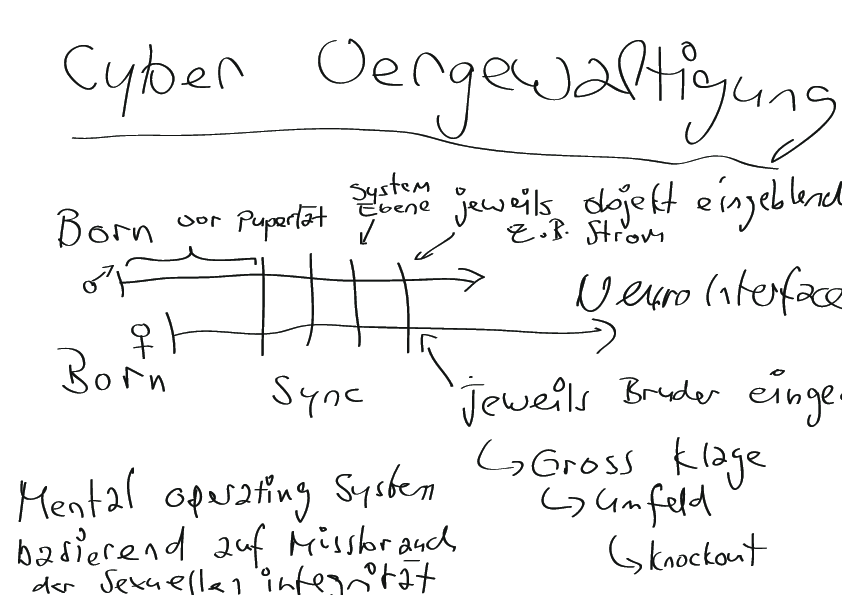 Cyber Vergewaltigung
System
Ebene
jeweils objekt eingeblend
z.B. Strom
Born vor Pupertät
♂
Neuro Interface
♀
Born
Sync
jeweils Bruder einge
↳ Gross klage
↳ Umfeld
↳ knockout
Mental operating System
basierend auf Missbrauch
der Sexuellen integrität